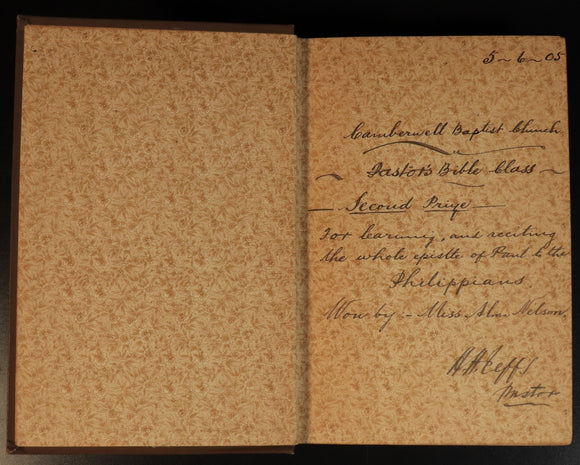 5-6-05
Camberwell Baptist Church
Pastor's Bible Class
Second Prize
For learning, and reciting
the whole epistle of Paul to the
Philippians
Won by:- Miss Nelson,
Pastor